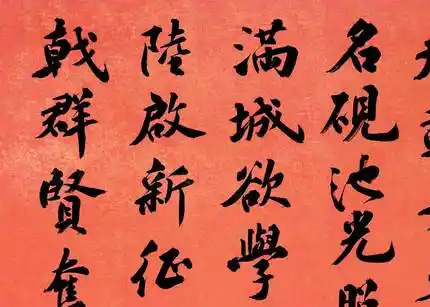 名硯池光照
滿城欲學
陸啟新征
戟群賢奮